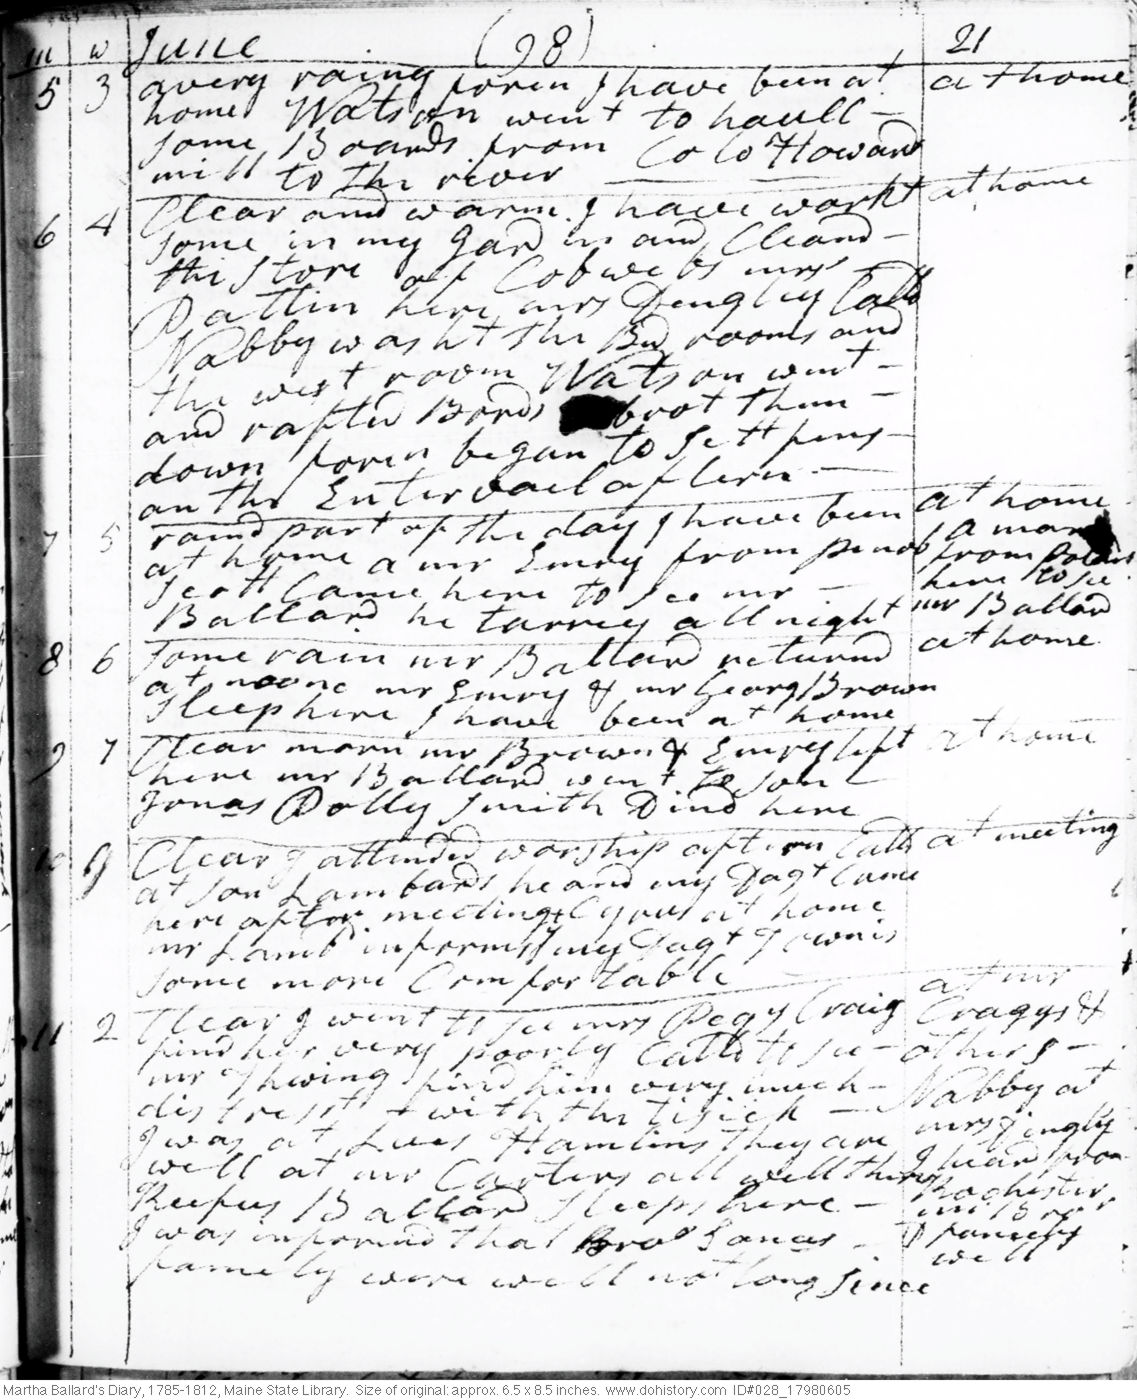 m w June (98) 21
5 3 a very rainy foren I have been at at home
home Watson went to haull -
some Boards from Colo Howard
mill to the river
6 4 Clear and warm. I have workt at home
some in my gardin and Cleand -
the Store of Cobwebs mrs
Pattin here, mrs Dengley Calld
Nabby washt the Bed rooms and
the west room Watson went -
and rafted Bords brot them -
down foren began to Sett fens -
on the Intervael aftern -
7 5 raind part of the day I have been at home
at home a mr Emry from penob a man
Scott Came here to see mr - from
Ballard he tarrey all night here to see
mr Ballard
8 6 some rain mr Ballard returnd at home
at noone mr Emry & mr Georg Brown
Sleep here I have been at home
9 7 Clear morn mr Brown & Emry left at home
here mr Ballard went to son
Jonas Polly Smith Dind here
10 g Clear I attended worship aftern Calld at meeting
at son Lambards he and my Dagt Came
here after meeting & Cyrus at home
mr Lamb informs my Dagt Town is
some more Comfortable
11 2 Clear I went to see mrs Pegy Craig at mr
find her very poorly Calld to see - Craggs &
mr Thwing find him very much - others -
distresst with the tisick - Nabby at
I was at Lues Hamlins they are mrs Dingly
well at mr Carters all well there I heard from
Reefus Ballard Sleeps here - Rochester.
I was informd that Bro Jonas - mr Bro
famely were well not long since & famely
well
Martha Ballard's Diary, 1785-1812, Maine State Library. Size of original: approx. 6.5 x 8.5 inches. www.dohistory.com ID#028_17980605